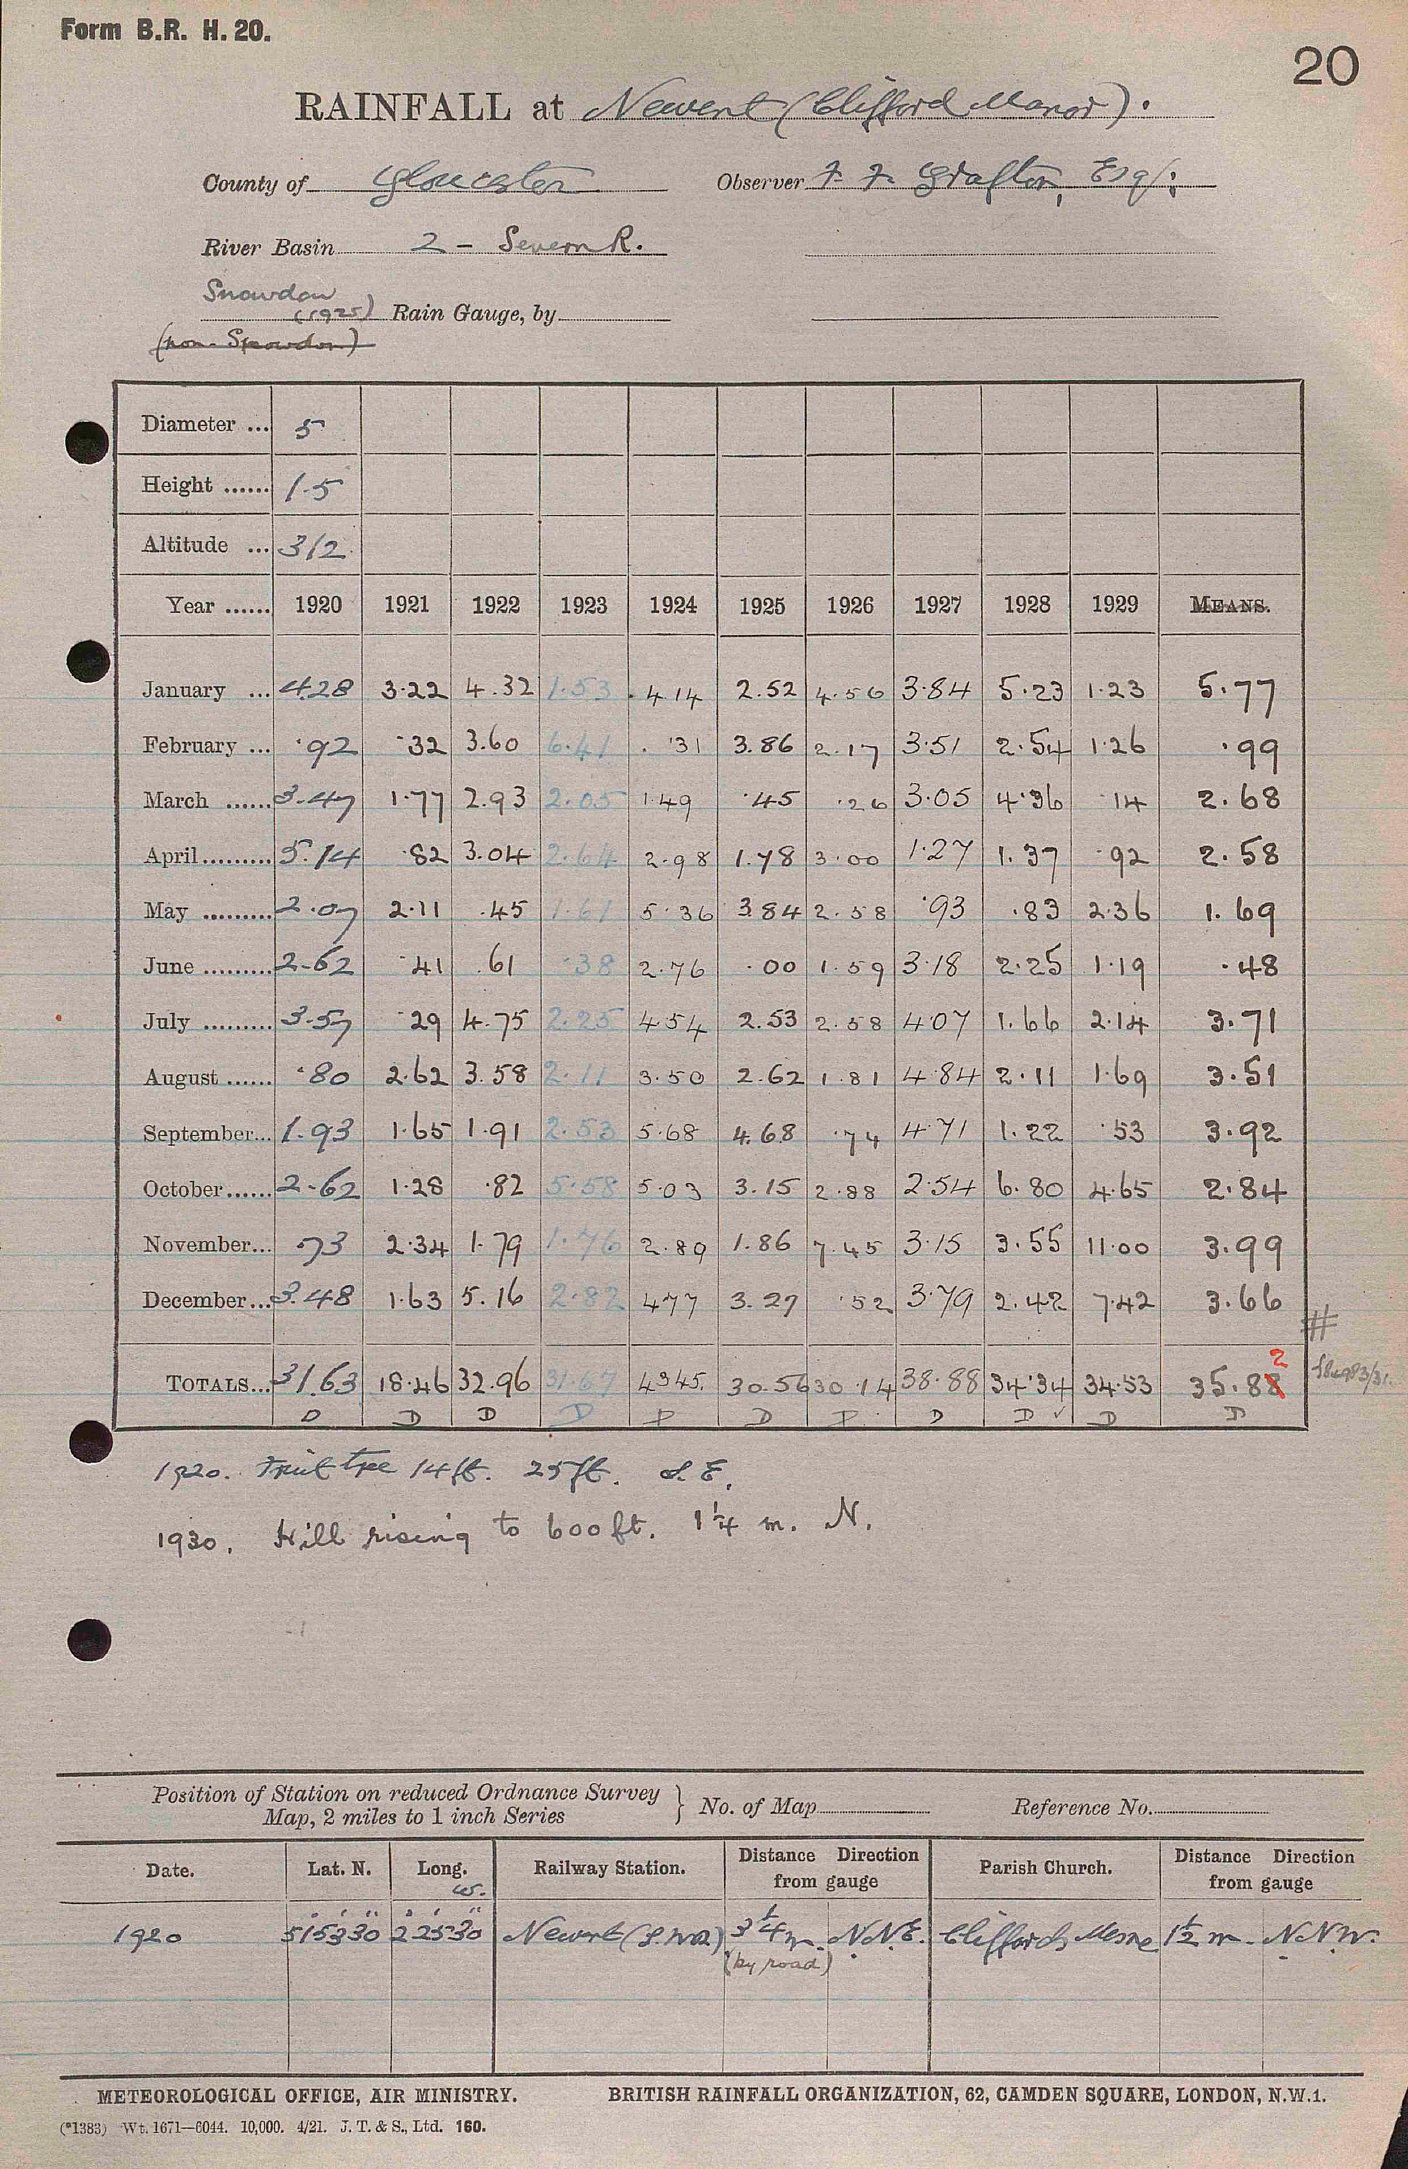 Form B.R. H. 20.
20
RAINFALL at Newent (Clifford Manor).
County of Gloucester Observer F. F. Grafton, Esq:
River Basin 2 - Severn R.
Snowdon
(1925) Rain Gauge, by
(non-Snowdon)
Diameter ... 5
Height ...... 1.5
Altitude ... 312
Year ...... 1920 1921 1922 1923 1924 1925 1926 1927 1928 1929 MEANS.
January ... 4.28 3.22 4.32 1.53 4.14 2.52 4.56 3.84 5.23 1.23 5.77
February ... .92 .32 3.60 6.41 .31 3.86 2.17 3.51 2.54 1.26 .99
March ...... 3.47 1.77 2.93 2.05 1.49 .45 .26 3.05 4.36 .14 2.68
April......... 5.14 .82 3.04 2.64 2.98 1.78 3.00 1.27 1.37 .92 2.58
May ......... 2.07 2.11 .45 1.61 5.36 3.84 2.58 .93 .83 2.36 1.69
June ......... 2.62 .41 .61 .38 2.76 .00 1.59 3.18 2.25 1.19 .48
July ......... 3.57 .29 4.75 2.25 4.54 2.53 2.58 4.07 1.66 2.14 3.71
August ...... .80 2.62 3.58 2.11 3.50 2.62 1.81 4.84 2.11 1.69 3.51
September... 1.93 1.65 1.91 2.53 5.68 4.68 .74 4.71 1.22 .53 3.92
October...... 2.62 1.28 .82 5.58 5.03 3.15 2.88 2.54 6.80 4.65 2.84
November... .73 2.34 1.79 1.76 2.89 1.86 7.45 3.15 3.55 11.00 3.99
December... 3.48 1.63 5.16 2.82 4.77 3.27 .52 3.79 2.42 7.42 3.66
#
2
TOTALS... 31.63 18.46 32.96 31.67 43.45. 30.56 30.14 38.88 34.34 34.53 35.88
D D D D D D D D D ✓ D D
1920. Fruit tree 14ft. 25ft. S.E.
1930. Hill rising to 600ft. 1¼ m. N.
Position of Station on reduced Ordnance Survey
Map, 2 miles to 1 inch Series } No. of Map Reference No.
Date. Lat. N. Long. W. Railway Station. Distance Direction from gauge Parish Church. Distance Direction from gauge
1920 51°53'30" 2°25'30" Newent (G.W.R) 3¼ m. N.N.E. Cliffords Mesne 1½ m. N.N.W.
(by road)
METEOROLOGICAL OFFICE, AIR MINISTRY. BRITISH RAINFALL ORGANIZATION, 62, CAMDEN SQUARE, LONDON, N.W.1.
(*1383) Wt. 1671—6044. 10,000. 4/21. J. T. & S., Ltd. 160.